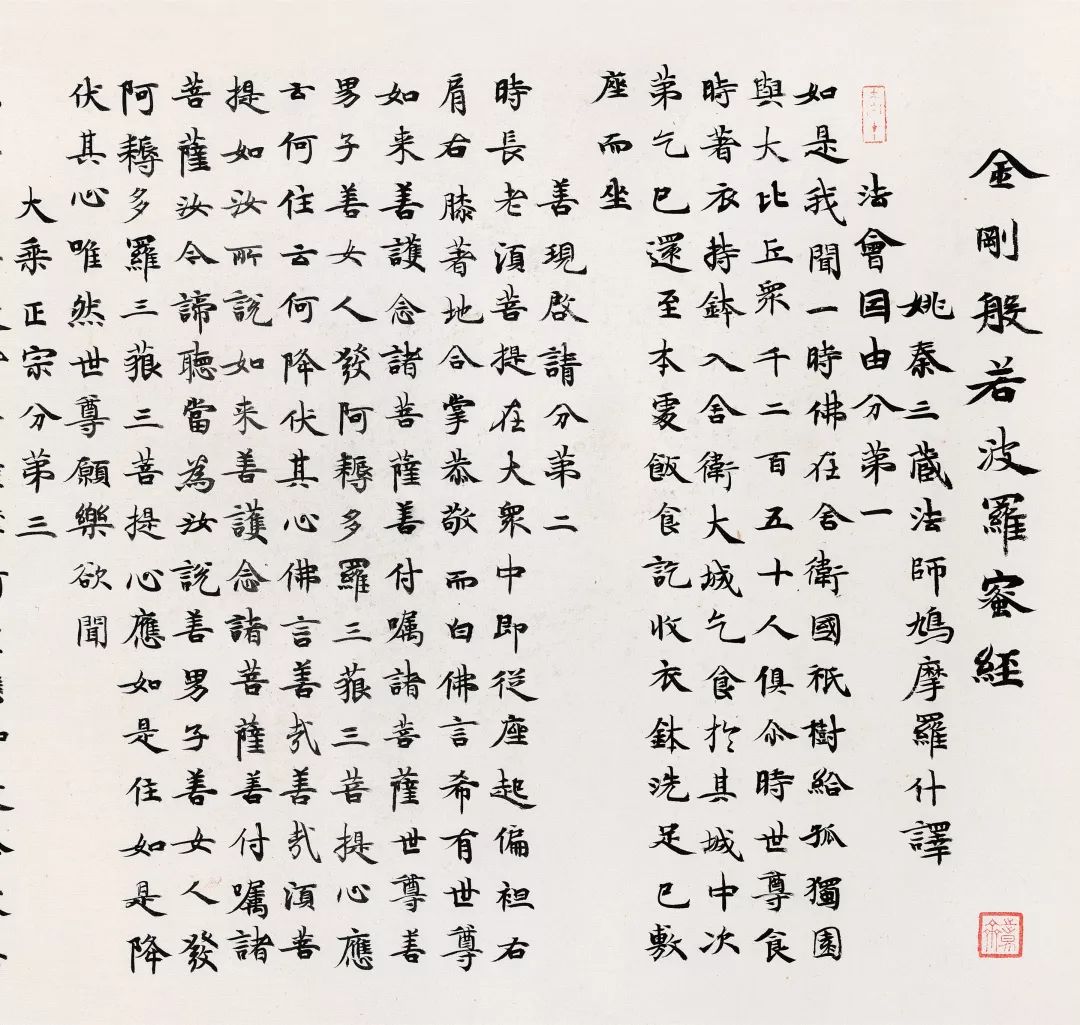 金剛般若波羅蜜經
姚秦三藏法師鳩摩羅什譯
法會因由分第一
如是我聞一時佛在舍衛國祇樹給孤獨園
與大比丘眾千二百五十人俱尒時世尊食
時著衣持鉢入舍衛大城乞食於其城中次
第乞已還至本處飯食訖收衣鉢洗足已敷
座而坐
善現啟請分第二
時長老湏菩提在大眾中即從座起偏袒右
肩右膝著地合掌恭敬而白佛言希有世尊
如来善護念諸菩薩善付嘱諸菩薩世尊善
男子善女人發阿耨多羅三藐三菩提心應
云何住云何降伏其心佛言善哉善哉湏菩
提如汝所說如来善護念諸菩薩善付嘱諸
菩薩汝今諦聽當為汝說善男子善女人發
阿耨多羅三藐三菩提心應如是住如是降
伏其心唯然世尊願樂欲聞
大乘正宗分第三